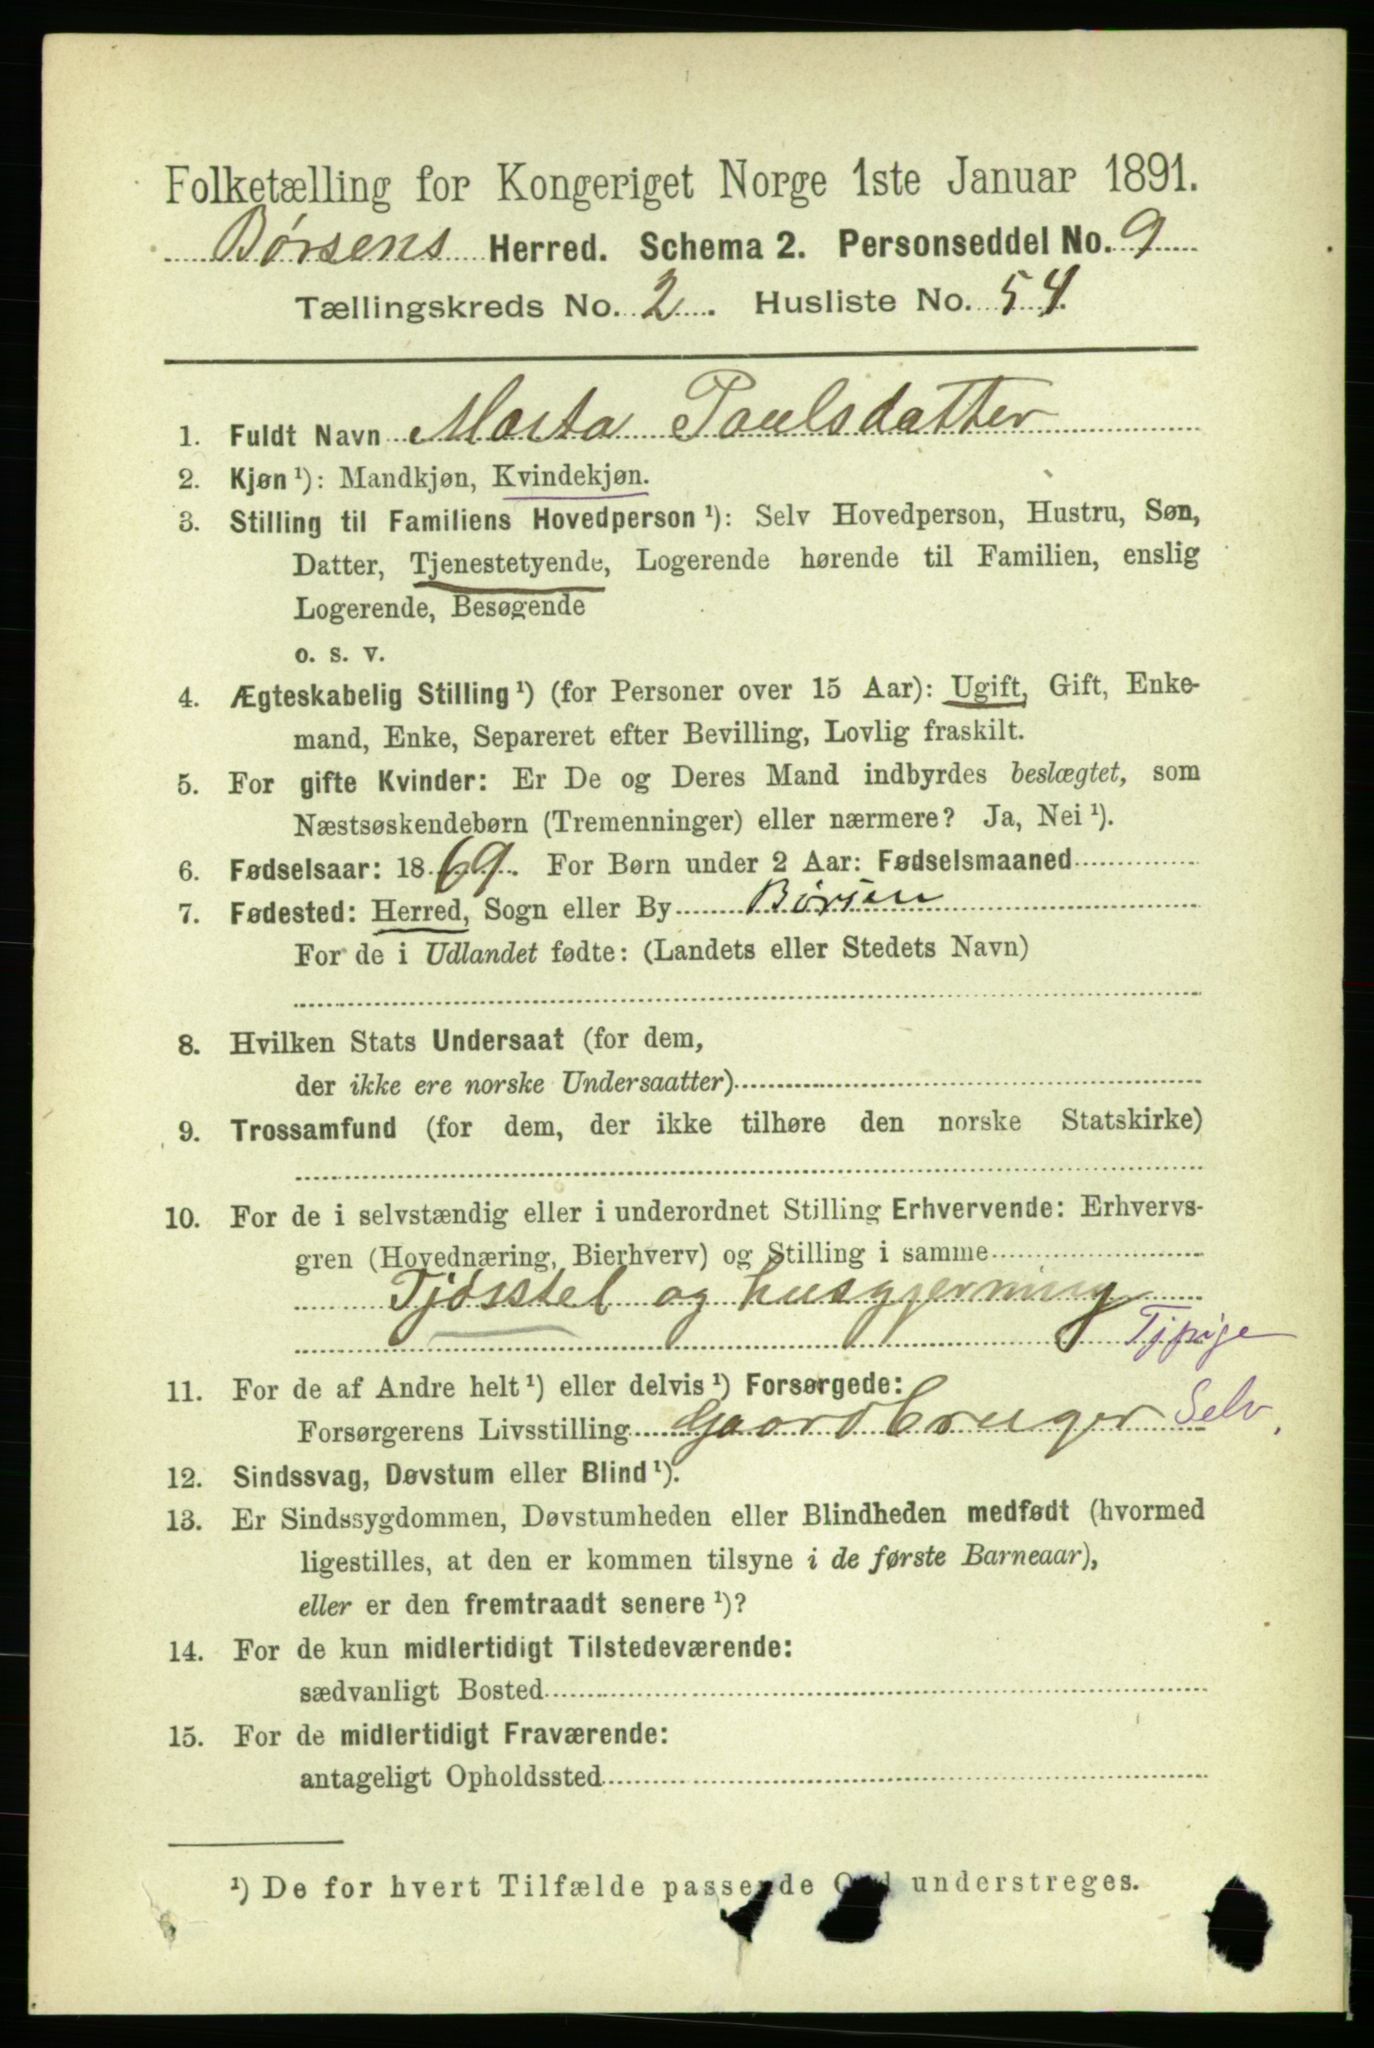 Folketælling for Kongeriget Norge 1ste Januar 1891.
Børsens Herred. Schema 2. Personseddel No. 9
Tællingskreds No. 2. Husliste No. 54.
1. Fuldt Navn Marta Paulsdatter
2. Kjøn ¹): Mandkjøn, Kvindekjøn.
3. Stilling til Familiens Hovedperson ¹): Selv Hovedperson, Hustru, Søn,
Datter, Tjenestetyende, Logerende hørende til Familien, enslig
Logerende, Besøgende
o. s. v.
4. Ægteskabelig Stilling ¹) (for Personer over 15 Aar): Ugift, Gift, Enke-
mand, Enke, Separeret efter Bevilling, Lovlig fraskilt.
5. For gifte Kvinder: Er De og Deres Mand indbyrdes beslægtet, som
Næstsøskendebørn (Tremenninger) eller nærmere? Ja, Nei ¹).
6. Fødselsaar: 1869. For Børn under 2 Aar: Fødselsmaaned
7. Fødested: Herred, Sogn eller By Børsen
For de i Udlandet fødte: (Landets eller Stedets Navn)
8. Hvilken Stats Undersaat (for dem,
der ikke ere norske Undersaatter)
9. Trossamfund (for dem, der ikke tilhøre den norske Statskirke)
10. For de i selvstændig eller i underordnet Stilling Erhvervende: Erhvervs-
gren (Hovednæring, Bierhverv) og Stilling i samme
Fjøsstel og husgjerning
Tjpige
11. For de af Andre helt ¹) eller delvis ¹) Forsørgede:
Forsørgerens Livsstilling Gaardbruger Selv
12. Sindssvag, Døvstum eller Blind ¹).
13. Er Sindssygdommen, Døvstumheden eller Blindheden medfødt (hvormed
ligestilles, at den er kommen tilsyne i de første Barneaar),
eller er den fremtraadt senere ¹)?
14. For de kun midlertidigt Tilstedeværende:
sædvanligt Bosted
15. For de midlertidigt Fraværende:
antageligt Opholdssted
¹) De for hvert Tilfælde passende Ord understreges.